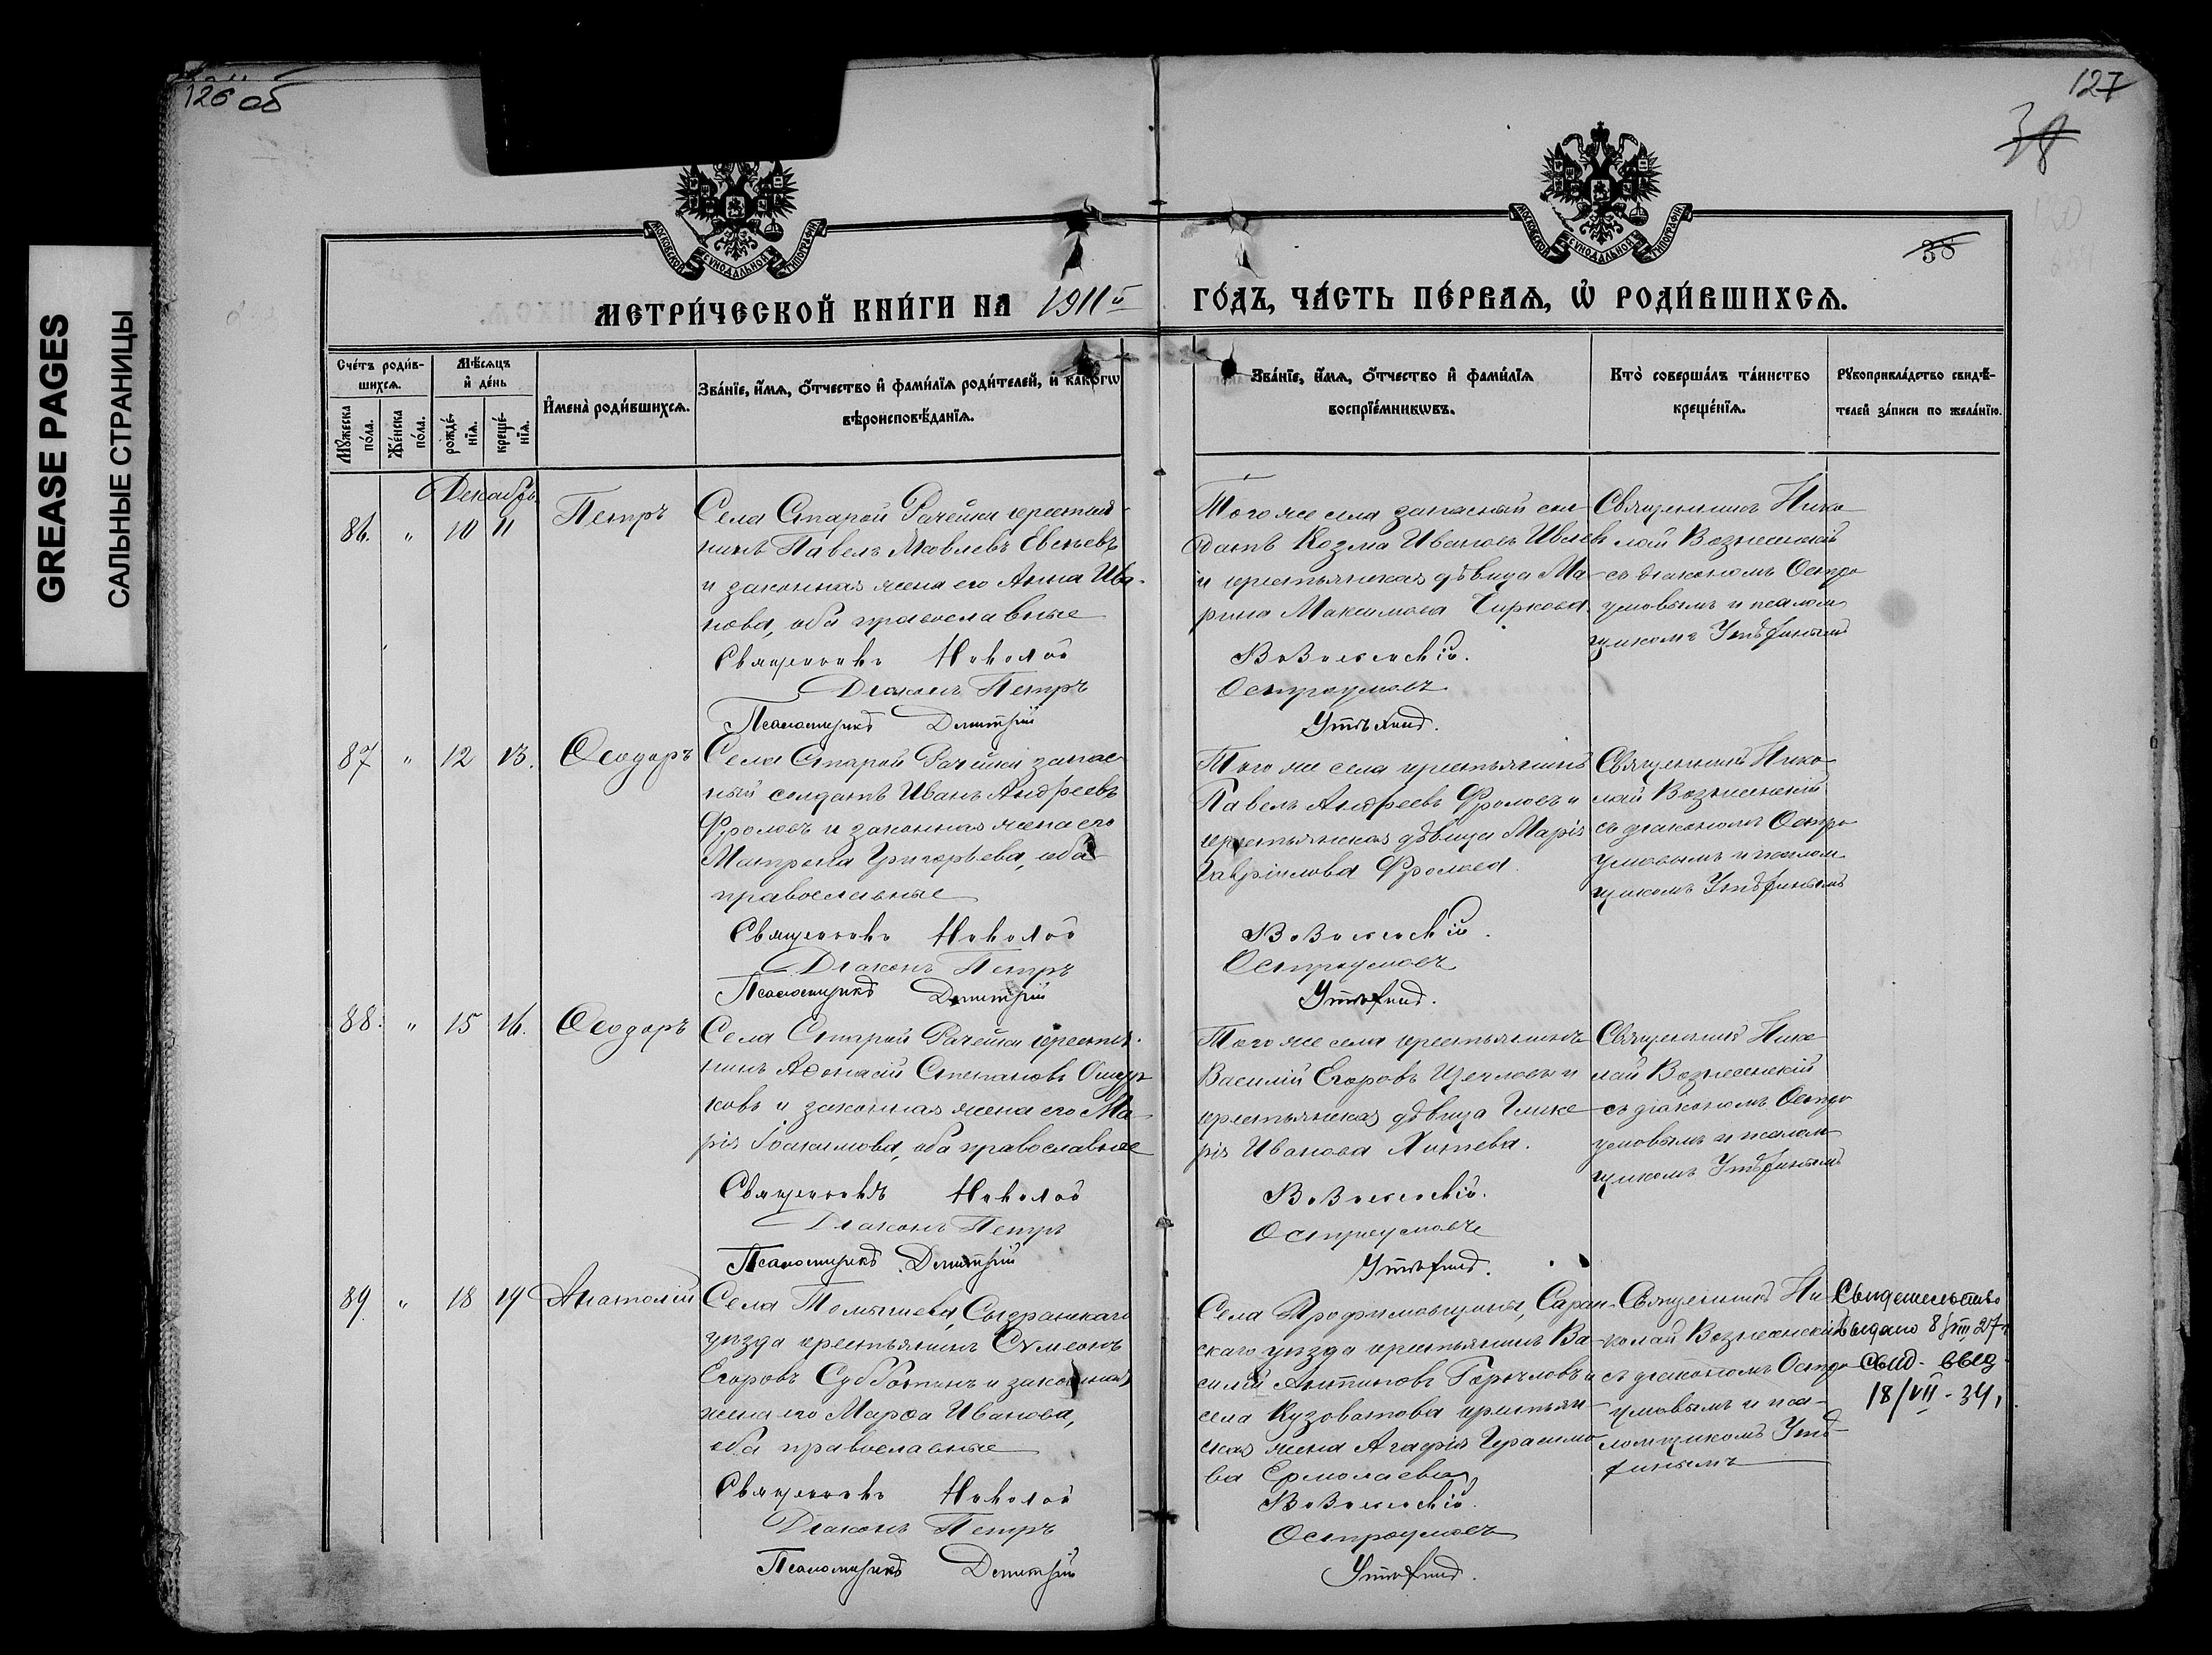 126 об
127
38
38
GREASE PAGES
САЛЬНЫЕ СТРАНИЦЫ
МОСКОВСКОЙ СѴНОДАЛЬНОЙ ТИПОГРАФІИ
МОСКОВСКОЙ СѴНОДАЛЬНОЙ ТИПОГРАФІИ
МЕТРИ́ЧЕСКОЙ КНИ́ГИ НА 1911й
ГО́ДЪ, ЧА́СТЬ ПЕ́РВАЯ, Ѡ РОДИ́ВШИХСЯ.
Сче́тъ роди́в-
шихся.
Мѣ́сяцъ
и де́нь
Мꙋжеска по́ла.
Же́нска по́ла.
рожде́-нїя.
креще́-нїя.
И҆мена̀ роди́вшихся.
Зва́нїе, и҆́мя, ѻ҆́тчество и҆ фами́лїя роди́телей, и҆ какогѡ
вѣроисповѣ́данїя.
Зва́нїе, и҆́мя, ѻ҆́тчество и҆ фами́лїя
воспрїе́мникѡвъ.
Кто̀ соверша́лъ та́инство
креще́нїя.
Рꙋкоприкла́дство свидѣ́-
телей за́писи по жела́нїю.
Декабрь
86. " 10 11 Петръ
Села Старой Рачейки крестья-
нинъ Павелъ Яковлевъ Евсѣевъ
и законная жена его Анна Ива-
нова, оба православные
Священникъ Николай
Діаконъ Петръ
Псаломщикъ Димитрій
Того же села запасный сол-
датъ Козма Ивановъ
и крестьянская дѣвица Ма-
рина Максимова Чиркова
Вознесенскій.
Остроумовъ
Утѣхинъ.
Священникъ Нико-
лай Вознесенскій
съ діакономъ Остро-
умовымъ и псалом-
щикомъ Утѣхинымъ
87 " 12 13. Ѳеодоръ
Села Старой Рачейки запас-
ный солдатъ Иванъ Андреевъ
Фроловъ и законная жена его
Матрена Григорьева, оба
православные
Священникъ Николай
Діаконъ Петръ
Псаломщикъ Димитрій
Того же села крестьянинъ
Павелъ Андреевъ Фроловъ и
крестьянская дѣвица Марія
Гавріилова Фролова.
Вознесенскій.
Остроумовъ
Утѣхинъ.
Священникъ Нико-
лай Вознесенскій
съ діакономъ Остро-
умовымъ и псалом-
щикомъ Утѣхинымъ
88. " 15 16. Ѳеодоръ
Села Старой Рачейки крестья-
нинъ Аѳонасій Степановъ
и законная жена его Ма-
рія Іоакимова, оба православные
Священникъ Николай
Діаконъ Петръ
Псаломщикъ Димитрій
Того же села крестьянинъ
Василій Егоровъ Щегловъ и
крестьянская дѣвица Глике-
рія Иванова
Вознесенскій.
Остроумовъ
Утѣхинъ.
Священникъ Нико-
лай Вознесенскій
съ діакономъ Остро-
умовымъ и псалом-
щикомъ Утѣхинымъ
89. " 18 19 Анатолій
Села Томышева, Сызранскаго
уѣзда крестьянинъ Сѵмеонъ
Егоровъ Субботинъ и законная
жена его Марѳа Иванова,
оба православные
Священникъ Николай
Діаконъ Петръ
Псаломщикъ Димитрій
Села Трофимовщины, Саран-
скаго уѣзда крестьянинъ Ва-
силій Антиповъ Горчловъ и
села Кузоватова крестьян-
ская жена Агафія Герасимо-
ва Ермолаева
Вознесенскій.
Остроумовъ
Утѣхинъ.
Священникъ Ни-
колай Вознесенскій
съ діакономъ Остро-
умовымъ и пса-
ломщикомъ Утѣ-
хинымъ
Свидетельство
выдано 8/VIII 27 г
Свид. выд.
18/VII - 34 г.